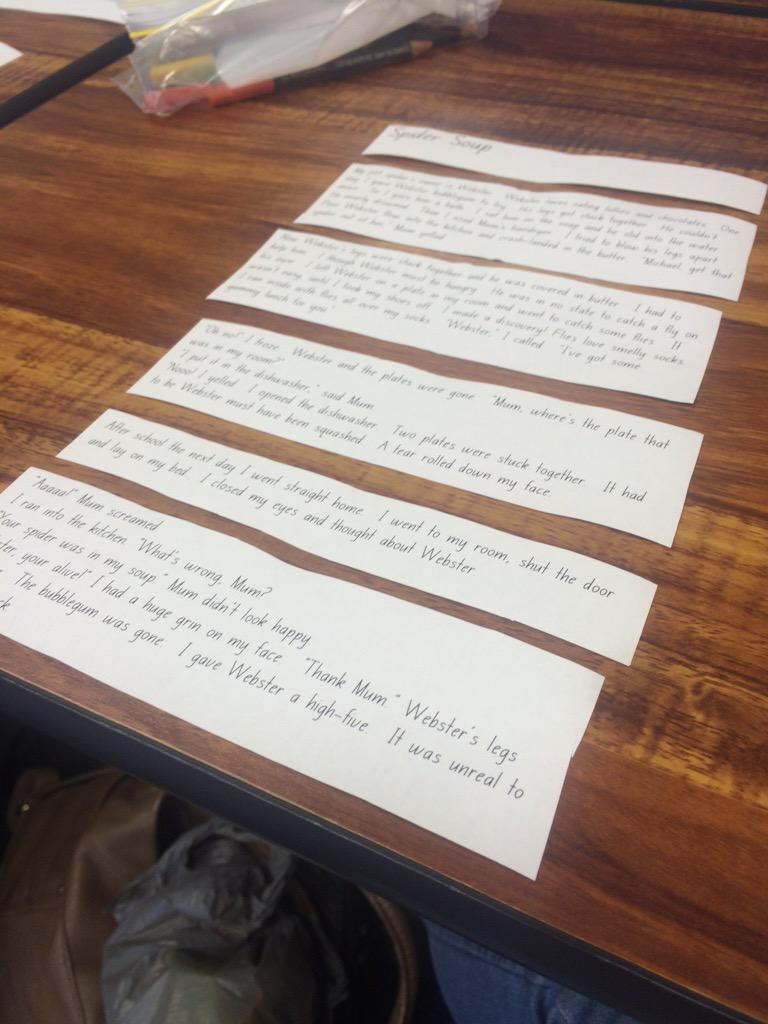 Spider Soup
My pet spider's name is Webster. Webster loves eating lollies and chocolates. One
day I gave Webster bubblegum to try. His legs got stuck together. He couldn't
move. So I gave him a bath. I sat him on the soap and he slid into the water.
He nearly drowned. Then I used Mum's hairdryer. I tried to blow his legs apart.
Poor Webster flew into the kitchen and crash-landed in the butter. "Michael, get that
spider out of here," Mum yelled.
Now, Webster's legs were stuck together and he was covered in butter. I had to
help him. I though Webster must be hungry. He was in no state to catch a fly on
his own. I left Webster on a plate in my room and went to catch some flies. It
wasn't easy, until I took my shoes off. I made a discovery! Flies love smelly socks.
I ran inside with flies all over my socks. "Webster," I called. "I've got some
yummy lunch for you."
"Oh no!" I froze. Webster and the plates were gone. "Mum, where's the plate that
was in my room?"
"I put it in the dishwasher," said Mum.
"Nooo! I yelled. I opened the dishwasher. Two plates were stuck together. It had
to be Webster must have been squashed. A tear rolled down my face.
After school the next day I went straight home. I went to my room, shut the door
and lay on my bed. I closed my eyes and thought about Webster.
"Aaaaa!" Mum screamed.
I ran into the kitchen. "What's wrong, Mum?
Your spider was in my soup." Mum didn't look happy.
your alive!" I had a huge grin on my face. "Thank Mum." Webster's legs
The bubblegum was gone. I gave Webster a high-five. It was unreal to